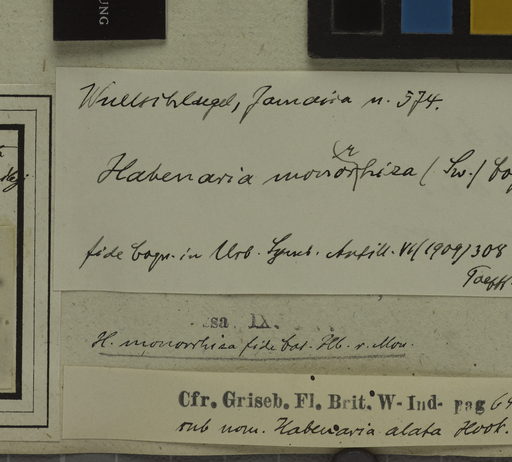 UNG
Wullschlaegel, Jamaica n. 574.
Habenaria monorrhiza (Sw.) Cog
fide Cogn. in Urb. Symb. Antill. VI (1909) 308
H. monorrhiza fide
Cfr. Griseb. Fl. Brit. W-Ind- pag 64
sub nom. Habenaria alata Hook.